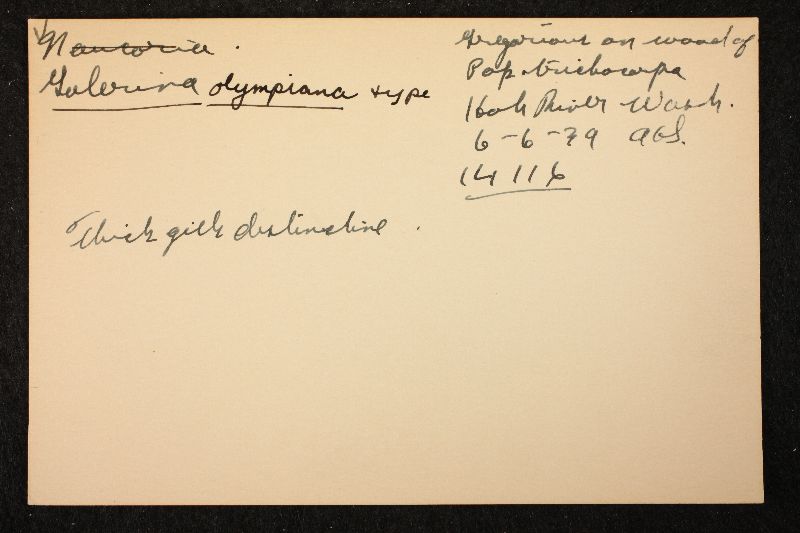 Naucoria.
Galerina olympiana type
Gregarious on wood of
Pop. trichocarpa
Hoh River Wash.
6-6-39 AHS.
14116
Thick gills distinctive.